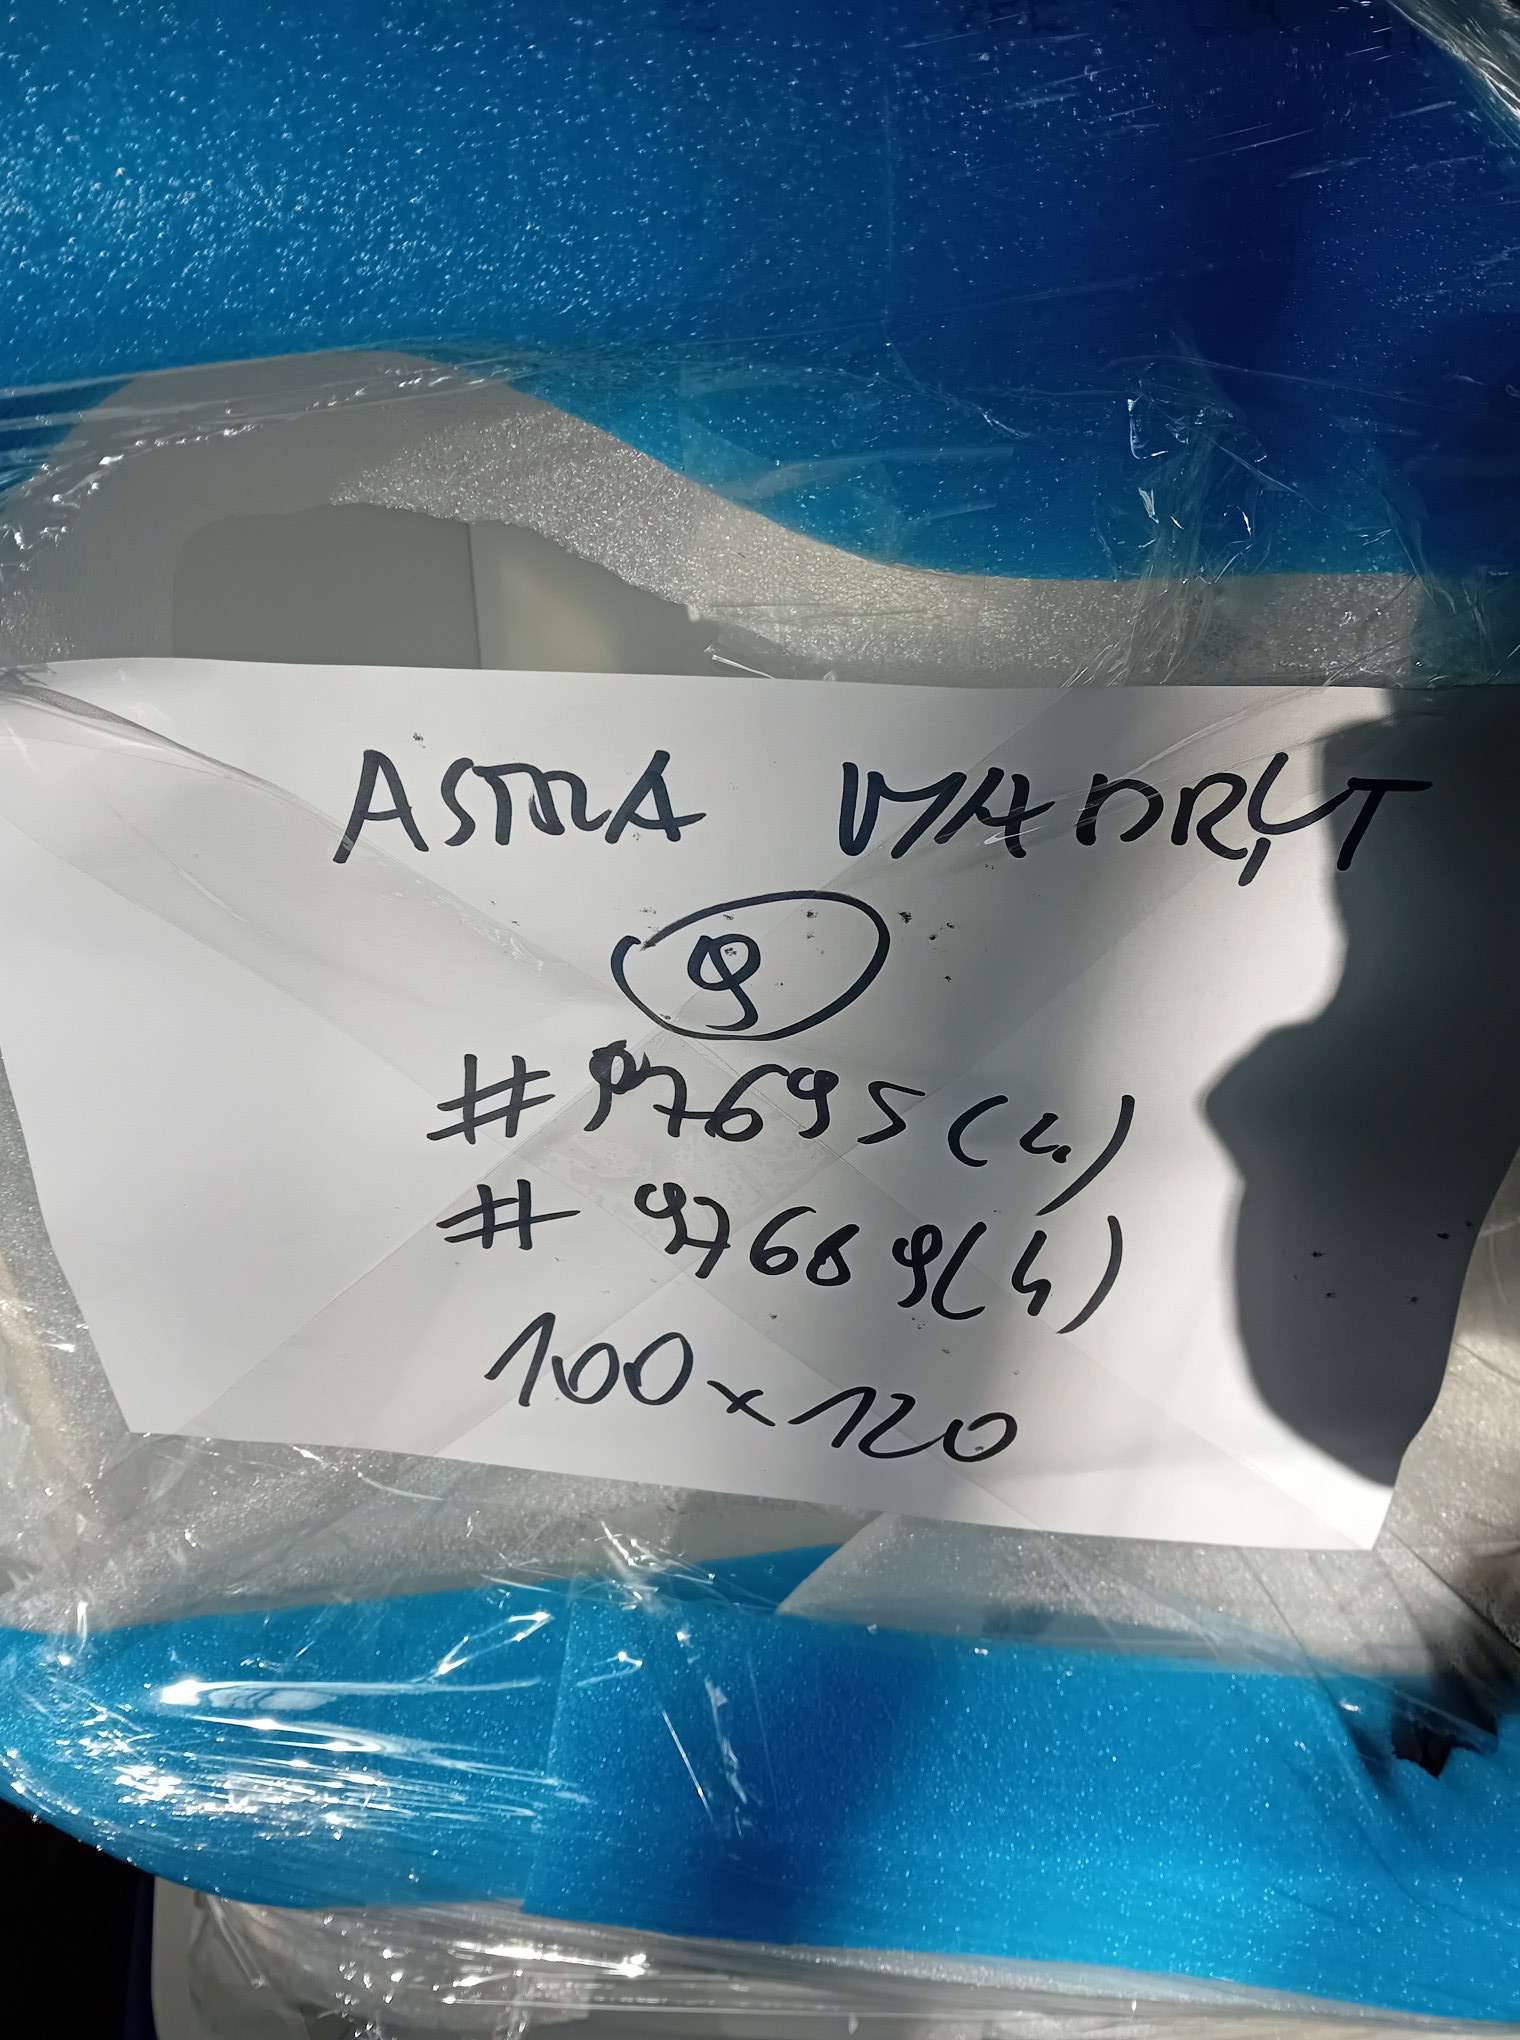 ASTRA MADRYT
9
#97695(4)
# 97689(4)
100x120